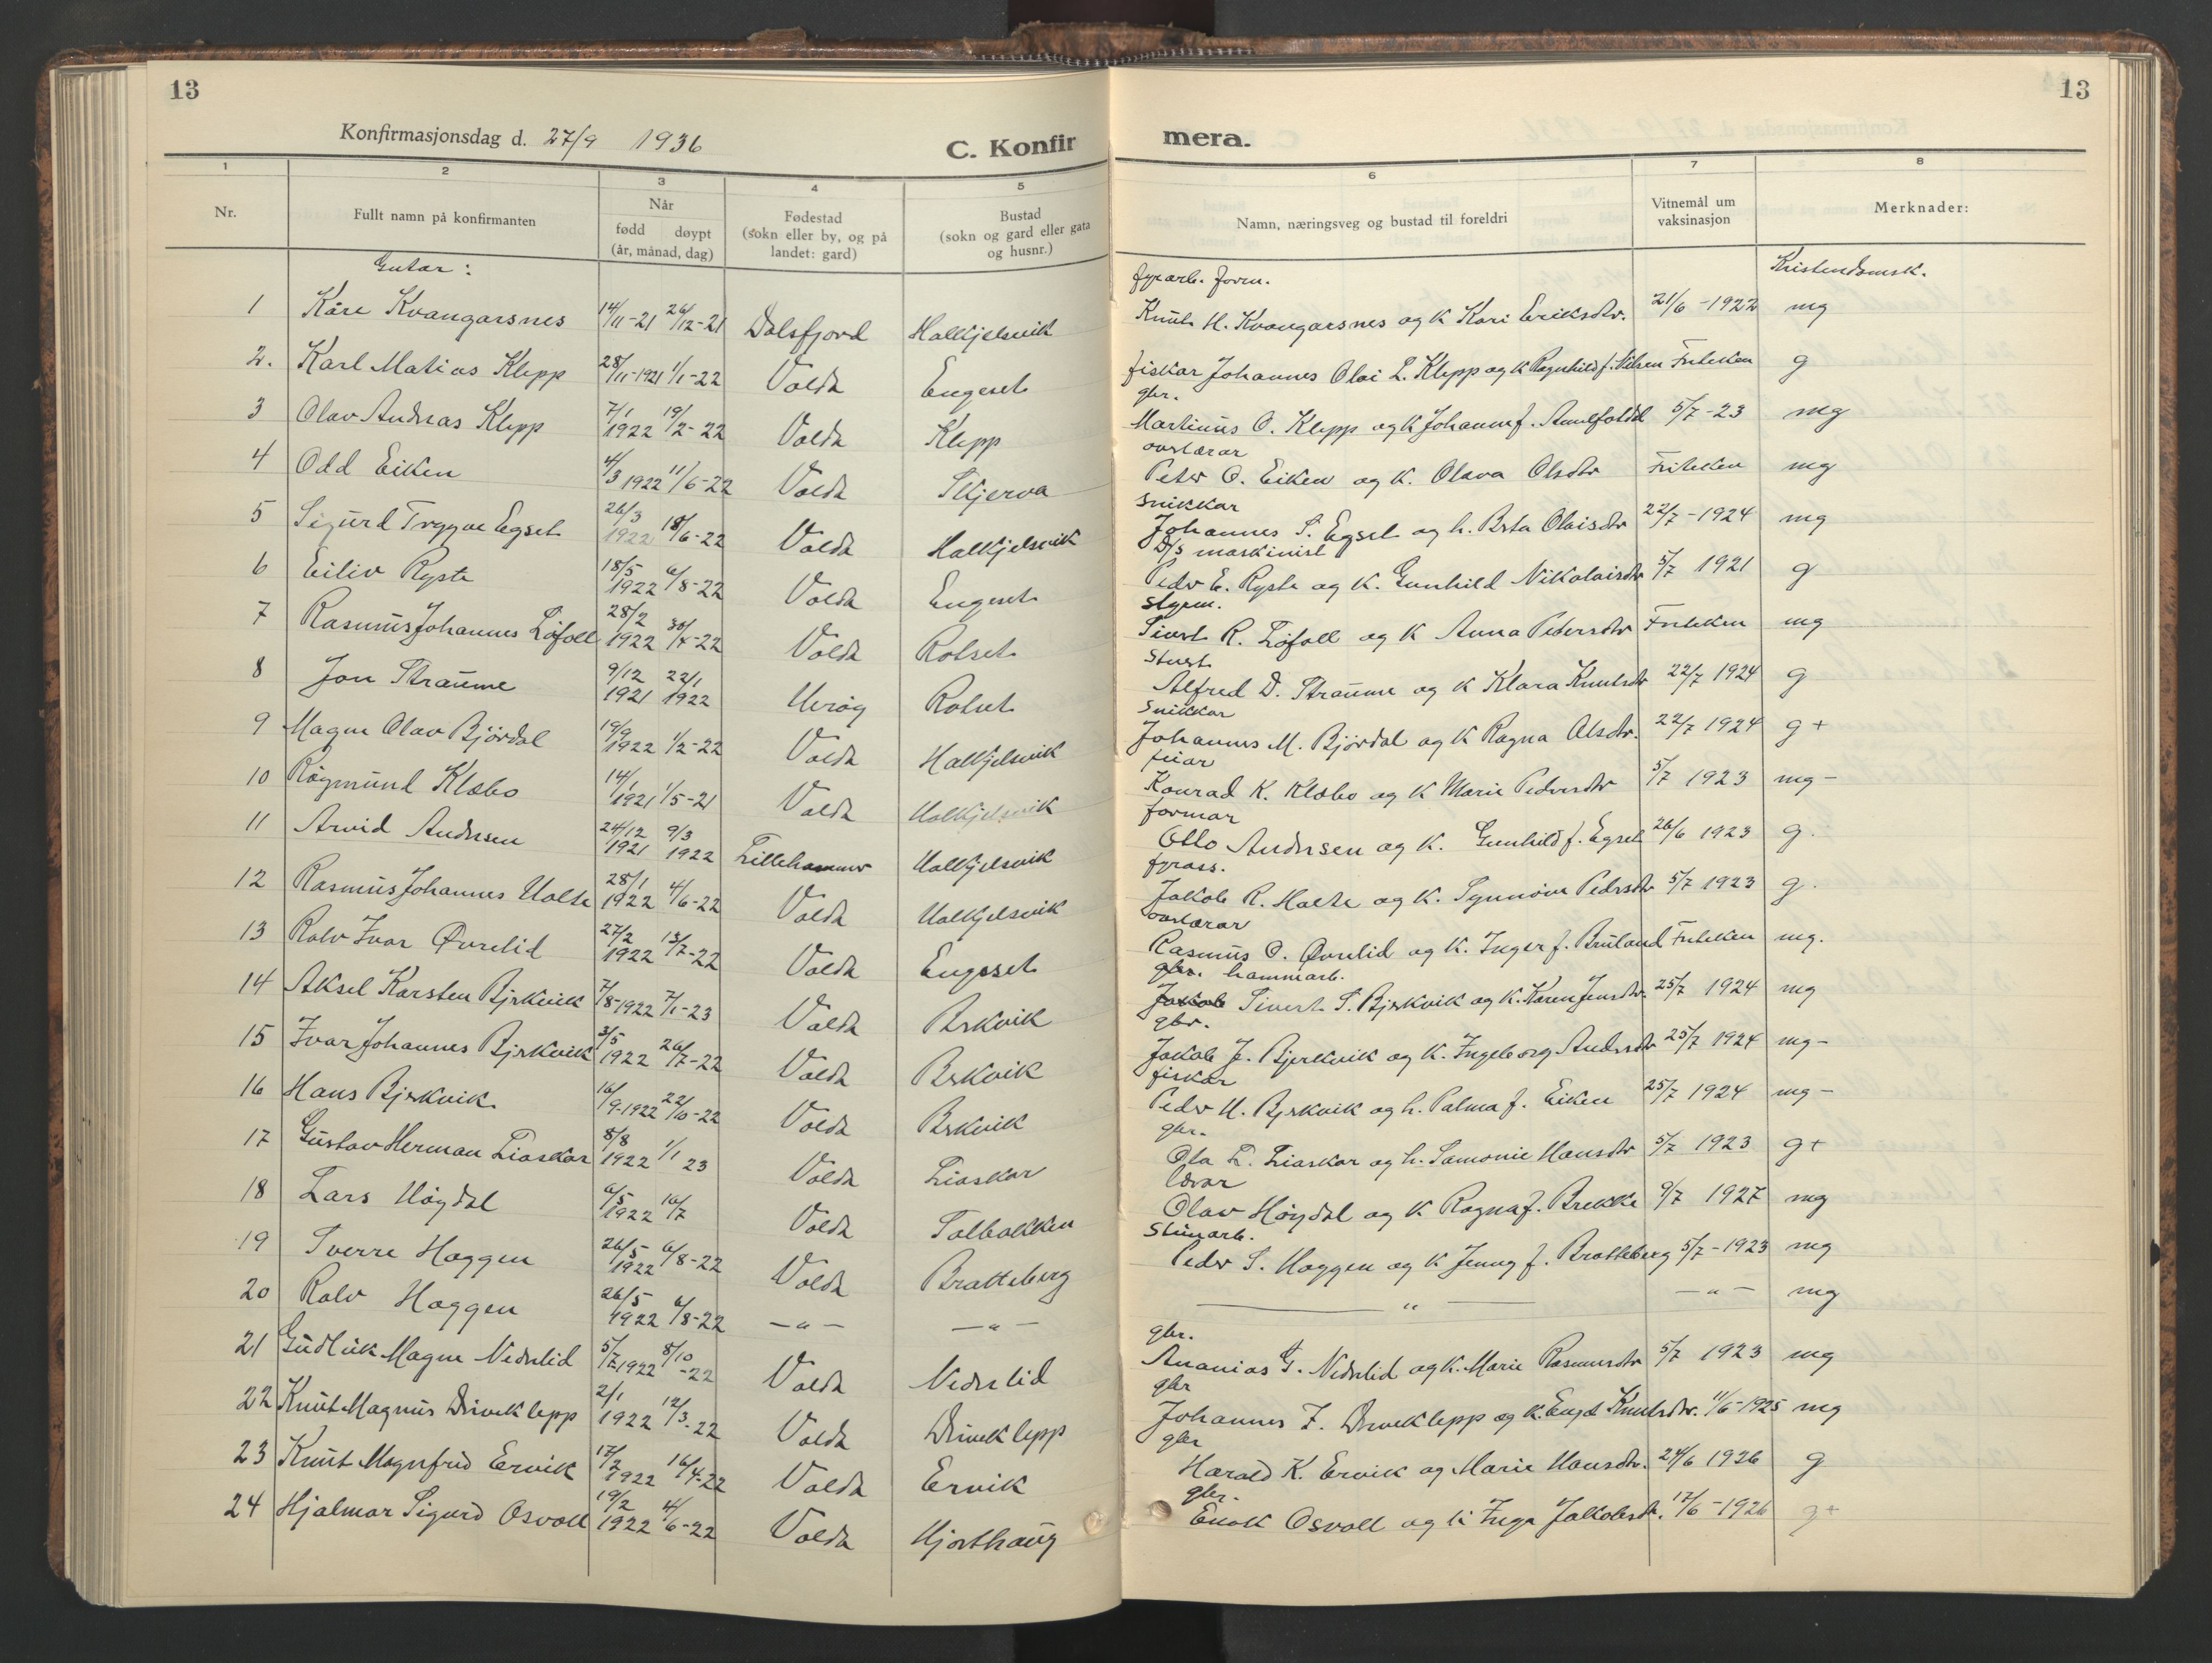 13
13
Konfirmasjonsdag d. 27/9 1936
C. Konfirmera.
1 2 3 4 5 6 7 8
Nr.
Fullt namn på konfirmanten
Når
fødd døypt
(år, månad, dag)
Fødestad
(sokn eller by, og på
landet: gard)
Bustad
(sokn og gard eller gata
og husnr.)
Namn, næringsveg og bustad til foreldri
Vitnemål um
vaksinasjon
Merknader:
Gutar:
Kristendomsk.
fyrarb. form.
1 Kåre Kvangarsnes 14/11-21 26/12-21 Dalsfjord Halkjelsvik Knut H. Kvangarsnes og k Kari Eriksdtr. 21/6-1922 mg
2. Karl Matias Klepp 28/11-1921 1/1-22 Volda Engeset fiskar Johannes Olai L. Klepp og k Ragnhild f. Nilsen Friteken g
gbr.
3 Olav Andreas Klepp 7/1 1922 19/2-22 Volda Klepp Martinus O. Klepp og k Johanne f. 5/7-23 mg
ovrlærar
4 Odd Eiken 4/3 1922 11/6-22 Volda Skjerva Peter O. Eiken og k. Olava Olsdtr Friteken mg
snikkar
5 Sigurd Trygve Egset 26/3 1922 18/6-22 Volda Halkjelsvik Johannes S. Egset og h. Berta Olaisdtr 22/7-1924 mg
D/S maskinist
6 Eiliv Ryste 18/5 1922 6/8-22 Volda Engeset Peder E. Ryste og k. Gunhild Nikolaisdtr 5/7 1921 g
styrm.
7 Rasmus Johannes Løfoll 28/2 1922 30/4-22 Volda Rotset Sivert R. Løfoll og k Anna Petersdtr Friteken mg
8 Jon Straume 9/12 1921 22/1 1922 Herøy Rotset Alfred D. Straume og k Klara Knutsdtr 22/7 1924 g
snikkar
9 Magne Olav Bjørdal 19/9 1922 1/2-22 Volda Halkjelsvik Johannes M. Bjørdal og k Ragna Olsdtr. 22/7 1924 g+
10 Rögmund Klæbo 14/1 1921 1/5-21 Volda Halkjelsvik Konrad K. Klæbo og k Marie Pedersdtr 5/7 1923 mg-
formar
11 Arvid Andersen 24/12 1921 9/3 1922 Lillehammer Halkjelsvik Otto Andersen og k. Gunhild f. Egset 26/6 1923 g.
fyrass.
12 Rasmus Johannes Holte 28/1 1922 4/6-22 Volda Halkjelsvik Jakob R. Holte og k. Synnøve Pedersdtr 5/7 1923 g.
ovrlærar
13 Rolv Ivar Øvrelid 27/2 1922 13/7-22 Volda Engeset Rasmus O. Øvrelid og k. Inger f. Bruland Friteken mg.
gbr. hamnarb.
14 Aksel Karsten Bjerkvik 7/8-1922 7/1-23 Volda Berkvik Jakob Sivert S. Bjerkvik og k. Karen Jensdtr. 25/7 1924 mg
gbr.
15 Ivar Johannes Bjerkvik 3/5 1922 26/7-22 Volda Berkvik Jakob J. Bjerkvik og k. Ingeborg Andersdtr 25/7 1924 mg-
fiskar
16 Hans Bjerkvik 16/9-1922 22/10-22 Volda Berkvik Peder H. Bjerkvik og h. Palma f. Eiken 25/7 1924 mg-
gbr.
17 Gustav Herman Liaskar 8/8 1922 1/1 23 Volda Liaskar Ola L. Liaskar og h. Samonie Hansdtr 5/7 1923 g+
lærar
18 Lars Høydal 6/5 1922 16/7 Volda Solbakken Olav Høydal og k Ragna f. Brekke 9/7 1927 mg
steinarb.
19 Sverre Haggen 26/5 1922 6/8-22 Volda Bratteberg Peder S. Haggen og k Jenny f. Bratteberg 5/7-1923 mg
20 Rolv Haggen 26/5 1922 6/8-22 —"— —"— —"— —"— mg
gbr.
21 Gudleik Magne Nedrelid 5/7 1922 8/10-22 Volda Nedrelid Ananias G. Nedrelid og k. Marie Rasmusdtr 5/7 1923 mg
gbr
22 Knut Magnus Driveklepp 2/1 1922 12/3-22 Volda Driveklepp Johannes I. Driveklepp og k. Knutsdtr. 11/6-1925 mg
gbr
23 Knut Magnfred Ervik 17/2 1922 16/4-22 Volda Ervik Harald K. Ervik og Marie Hansdtr. 24/6 1926 g
gbr.
24 Hjalmar Sigurd Osvoll 19/2 1922 4/6-22 Volda Hjorthaug Enok Osvoll og k Inga Jakobsdtr. 17/6-1926 g+